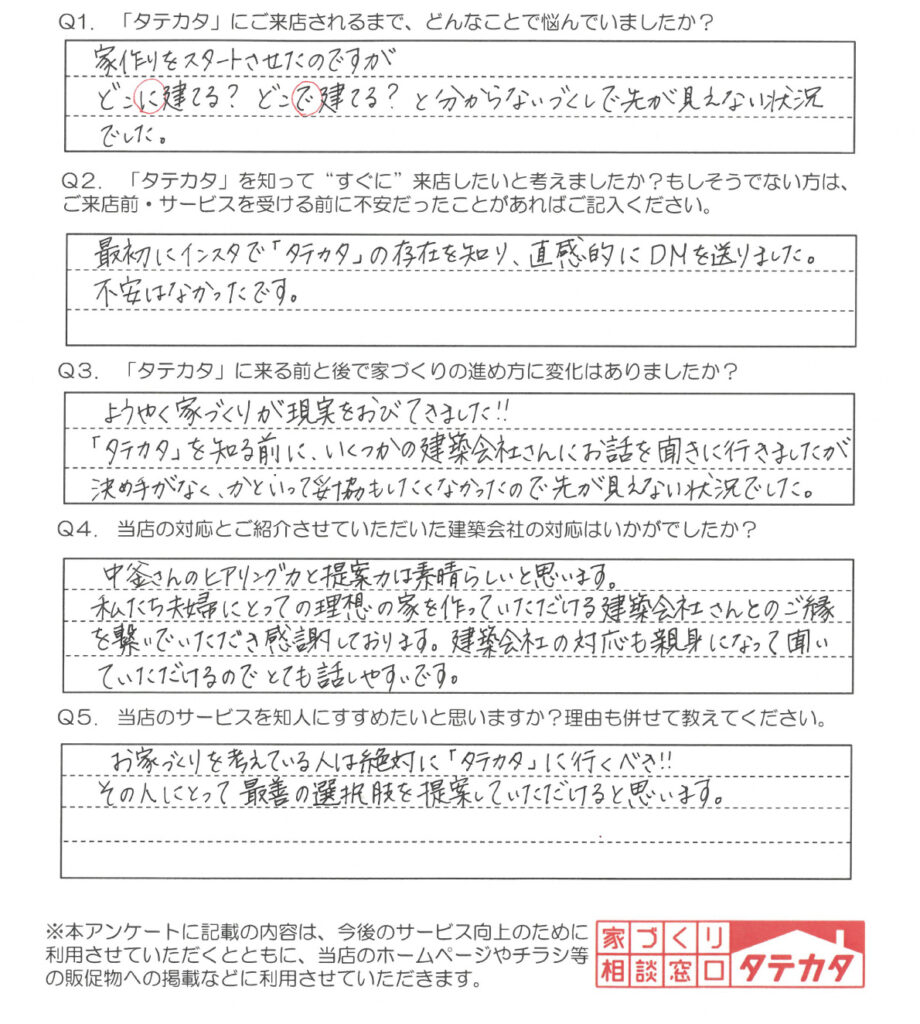 Q1. 「タテカタ」にご来店されるまで、どんなことで悩んでいましたか？
家作りをスタートさせたのですが
どこに建てる？ どこで建てる？ と分からないづくしで先が見えない状況
でした。
Q2. 「タテカタ」を知って“すぐに”来店したいと考えましたか？もしそうでない方は、
ご来店前・サービスを受ける前に不安だったことがあればご記入ください。
最初にインスタで「タテカタ」の存在を知り、直感的にDMを送りました。
不安はなかったです。
Q3. 「タテカタ」に来る前と後で家づくりの進め方に変化はありましたか？
ようやく家づくりが現実をおびてきました!!
「タテカタ」を知る前に、いくつかの建築会社さんにお話を聞きに行きましたが
決め手がなく、かといって妥協もしたくなかったので先が見えない状況でした。
Q4. 当店の対応とご紹介させていただいた建築会社の対応はいかがでしたか？
中釜さんのヒアリング力と提案力は素晴らしいと思います。
私たち夫婦にとっての理想の家を作っていただける建築会社さんとのご縁
を繋いでいただき感謝しております。建築会社の対応も親身になって聞い
ていただけるのでとても話しやすいです。
Q5. 当店のサービスを知人にすすめたいと思いますか？理由も併せて教えてください。
お家づくりを考えている人は絶対に「タテカタ」に行くべき!!
その人にとって最善の選択肢を提案していただけると思います。
※本アンケートに記載の内容は、今後のサービス向上のために
利用させていただくとともに、当店のホームページやチラシ等
の販促物への掲載などに利用させていただきます。
家づくり
相談窓口
タテカタ